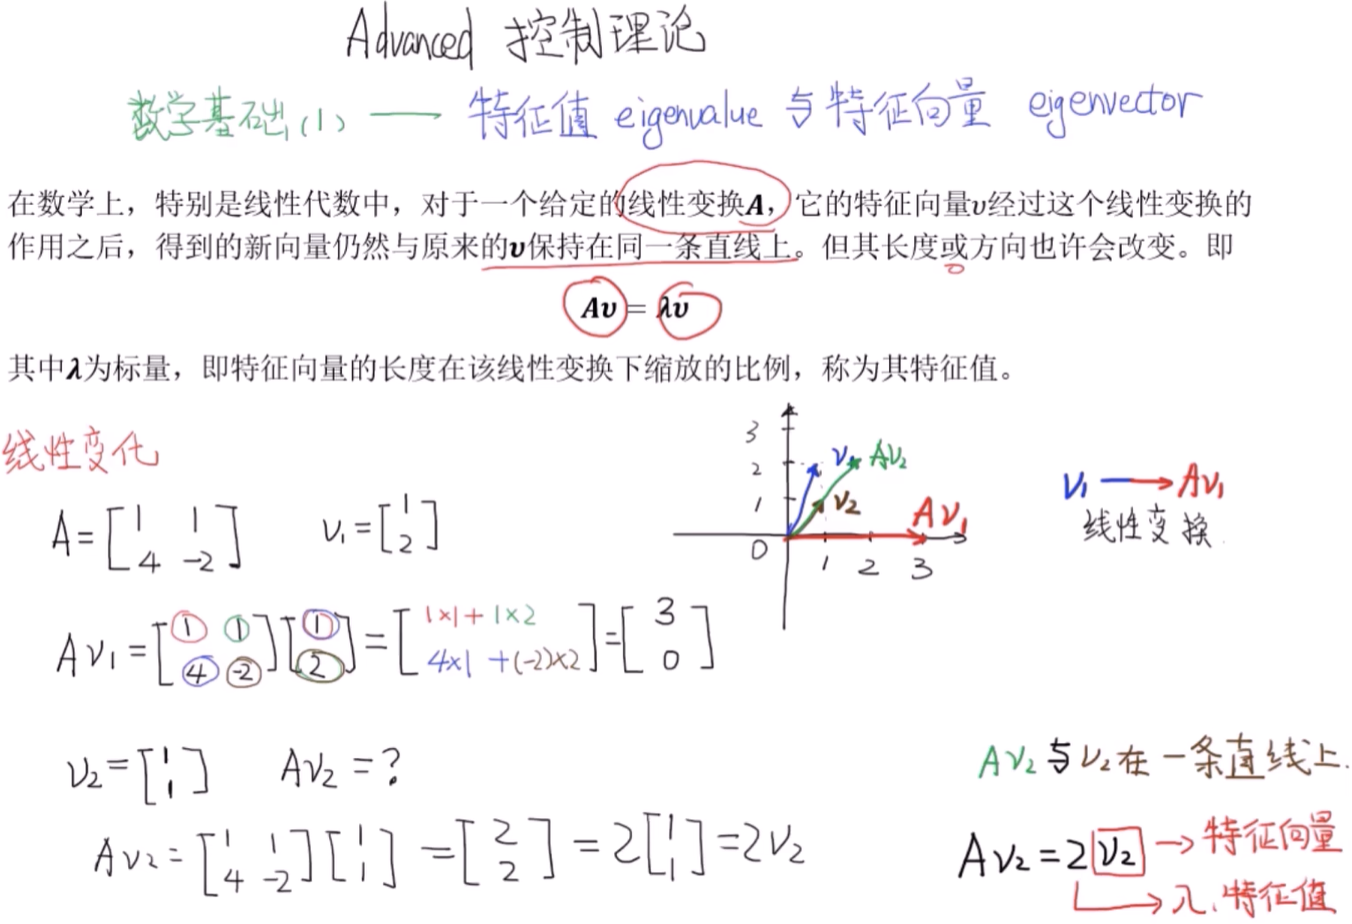 Advanced 控制理论
数学基础(1) —— 特征值 eigenvalue 与特征向量 eigenvector
在数学上，特别是线性代数中，对于一个给定的线性变换A，它的特征向量υ经过这个线性变换的
作用之后，得到的新向量仍然与原来的υ保持在同一条直线上。但其长度或方向也许会改变。即
Aυ = λυ
其中λ为标量，即特征向量的长度在该线性变换下缩放的比例，称为其特征值。
线性变化
A = [1 1
4 -2] ν₁ = [1
2]
3
2
1
0 1 2 3
ν₁ Aν₂
ν₂
Aν₁
ν₁ → Aν₁
线性变换
Aν₁ = [1 1
4 -2] [1
2] = [1×1+1×2
4×1+(-2)×2] = [3
0]
ν₂ = [1
1] Aν₂ = ?
Aν₂ = [1 1
4 -2] [1
1] = [2
2] = 2[1
1] = 2ν₂
Aν₂与ν₂在一条直线上.
Aν₂ = 2ν₂ → 特征向量
→ λ.特征值